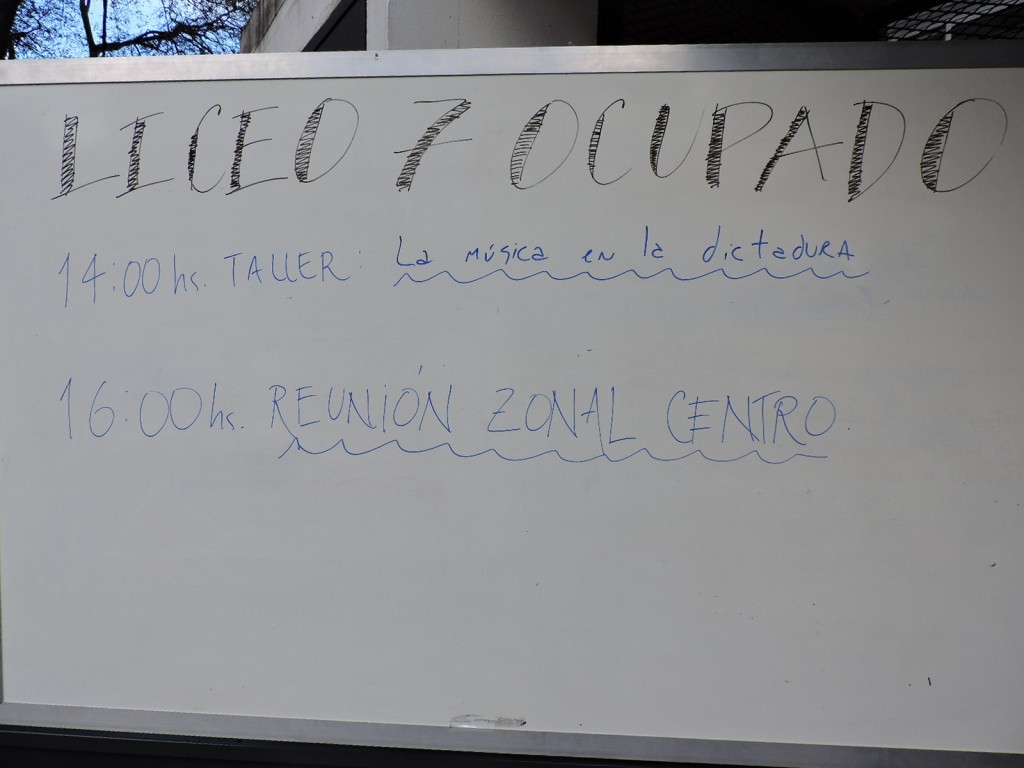 LICEO 7 OCUPADO
14:00 hs. TALLER: La música en la dictadura
16:00 hs. REUNIÓN ZONAL CENTRO.